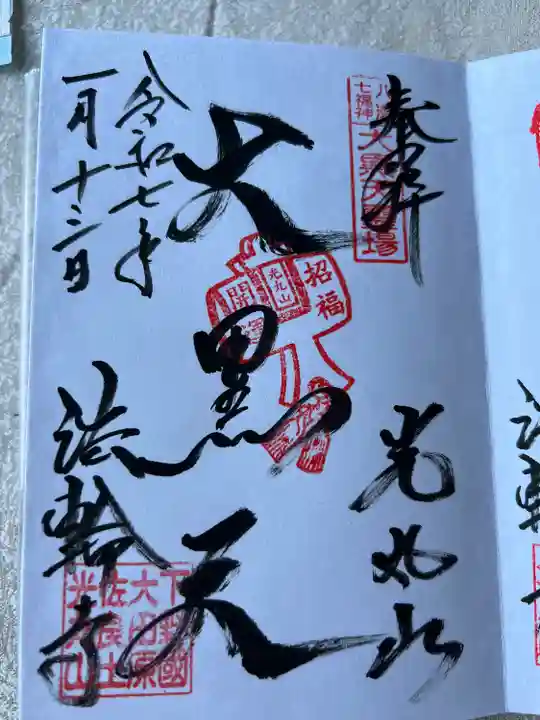 奉拝
七福神
大黒天霊場
光丸山
大黒天
招福
開運
光丸山
令和七年
一月十三日
法輪寺
下野國
大田原
佐良土
光丸山